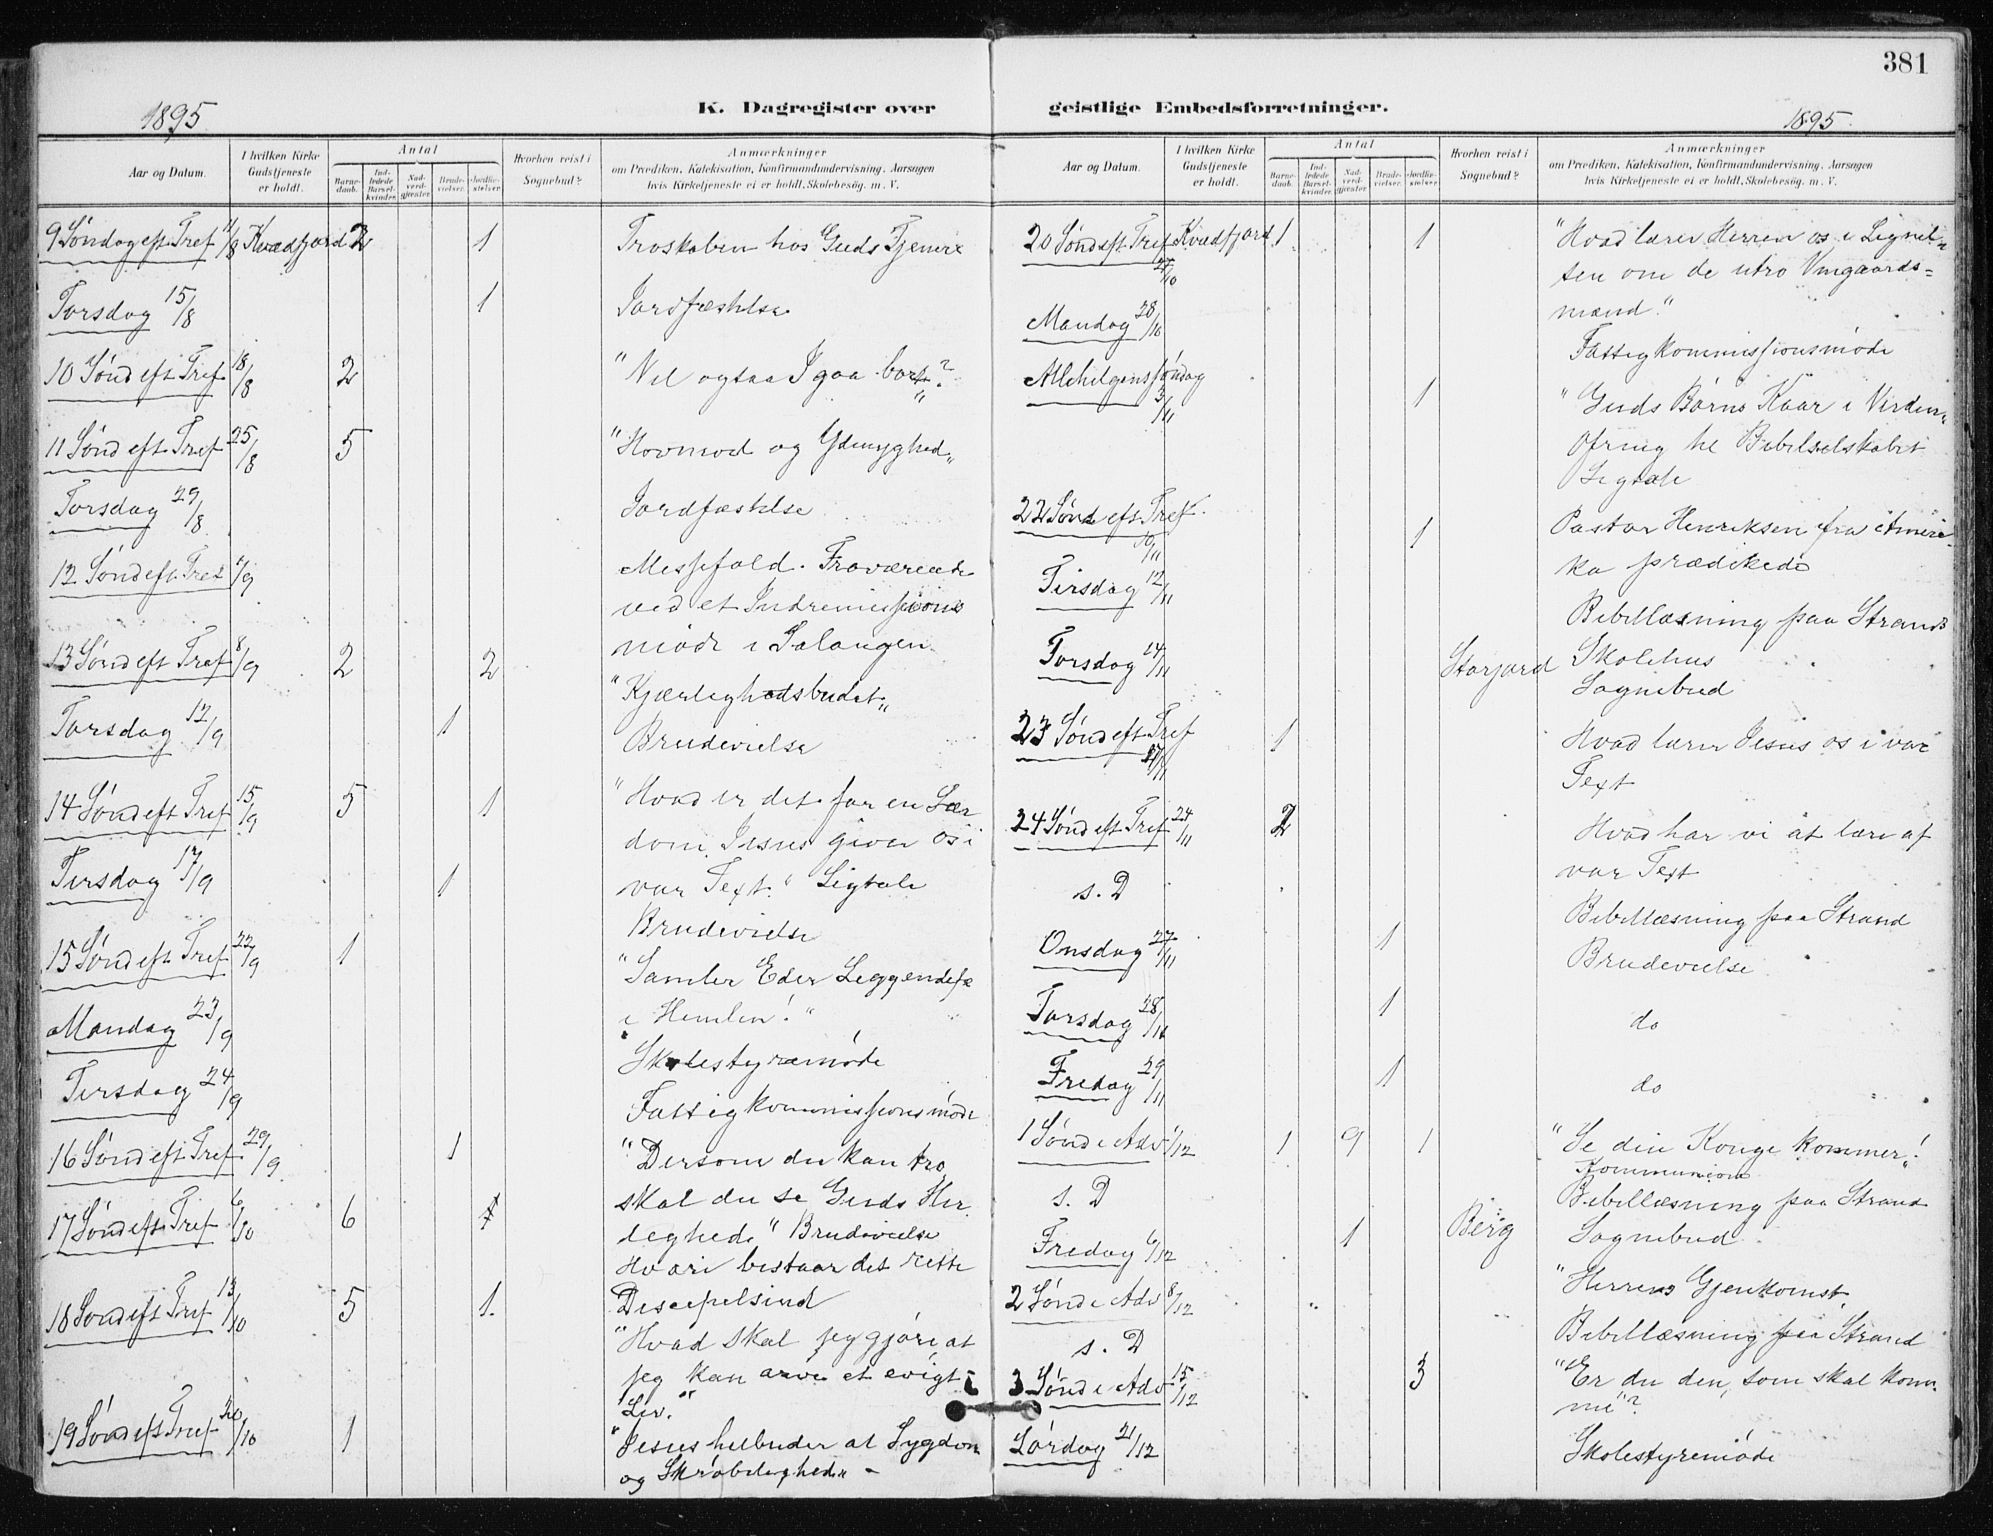 381
1895
K. Dagregister over
geistlige Embedsforretninger.
1895
Aar og Datum.
I hvilken Kirke Gudstjeneste er holdt.
Antal
Barnedaab.
Indledede Barselkvinder.
Nadverdgjester
Brudevielser.
Jordfæstelser
Hvorhen reist i Sognebud?
Anmærkninger
om Prædiken, Katekisation, Konfirmandundervisning, Aarsagen
hvis Kirketjeneste ei er holdt, Skolebesøg. m. V.
9 Søndag eft Tref 11/8 Kvædfjord 2 1 Troskaben hos Guds Tjenere
Torsdag 15/8 1 Jordfæstelse
10 Sønd eft Tref 18/8 2 "Vil ogsaa I gaa bort?"
11 Sønd eft Tref 25/8 5 "Hovmod og Ydmyghed"
Torsdag 29/8 Jordfæstelse
12 Sønd eft Tref 1/9 Messefald. Fraværende
ved et Indremissions
møde i Salangen
13 Sønd eft Tref 8/9 2 2 "Kjærlighedsbudet"
Torsdag 12/9 1 Brudevielse
14 Sønd eft Tref 15/9 5 1 "Hvad er det for en Lær
dom Jesus giver os i
vor Text." Ligtale
Tirsdag 17/9 1 Brudevielse
15 Sønd eft Tref 22/9 1 "Samler Eder Liggendefæ
i Himlen!"
Mandag 23/9 Skolestyremøde
Tirsdag 24/9 Fattigkommissionsmøde
16 Sønd eft Tref 29/9 1 "Dersom du kan tro
skal du se Guds Her
lighed" Brudevielse
17 Sønd eft Tref 6/10 6 1 Hvori bestaar det rette
Discipelsind
18 Sønd eft Tref 13/10 5 1. "Hvad skal jeg gjøre at
jeg kan arve et evigt
Liv."
19 Sønd eft Tref 20/10 1 "Jesus helbreder al Sygdom
og Skrøbelighed"
Aar og Datum.
I hvilken Kirke Gudstjeneste er holdt.
Antal
Barnedaab.
Indledede Barselkvinder.
Nadverdgjester
Brudevielser.
Jordfæstelser
Hvorhen reist i Sognebud?
Anmærkninger
om Prædiken, Katekisation, Konfirmandundervisning, Aarsagen
hvis Kirketjeneste ei er holdt, Skolebesøg. m. V.
20 Sønd eft Tref 27/10 Kvædfjord 1 1 "Hvad lærer Herren os i Lignel=
sen om de utro Vingaards=
mænd."
Mandag 28/10 Fattigkommissionsmøde
Allehelgenssøndag 3/11 1 "Guds Børns Kaar i Verden"
Ofring til Bibelselskabet
Ligtale
22 Sønd eft Tref 10/11 1 Pastor Henriksen fra Ameri-
ka prædikede
Tirsdag 12/11 Bibellæsning paa Strands
Skolehus
Torsdag 14/11 Storjord Sognebud
23 Sønd eft Tref 17/11 1 Hvad lærer Jesus os i vor
Text
24 Sønd eft Tref 24/11 2 Hvad har vi at lære af
vor Text
s. D Bibellæsning paa Strand
Onsdag 27/11 1 Brudevielse
Torsdag 28/11 1 do
Fredag 29/11 1 do
1 Sønd i Adv 1/12 1 9 1 "Se din Konge kommer!"
Kommunion
s. D Bibellæsning paa Strand
Fredag 6/12 1 Berg Sognebud
2 Sønd i Adv 8/12 "Herrens Gjenkomst"
s. D Bibellæsning paa Strand
3 Sønd i Adv 15/12 3 "Er du den, som skal kom-
me"?
Lørdag 21/12 Skolestyremøde